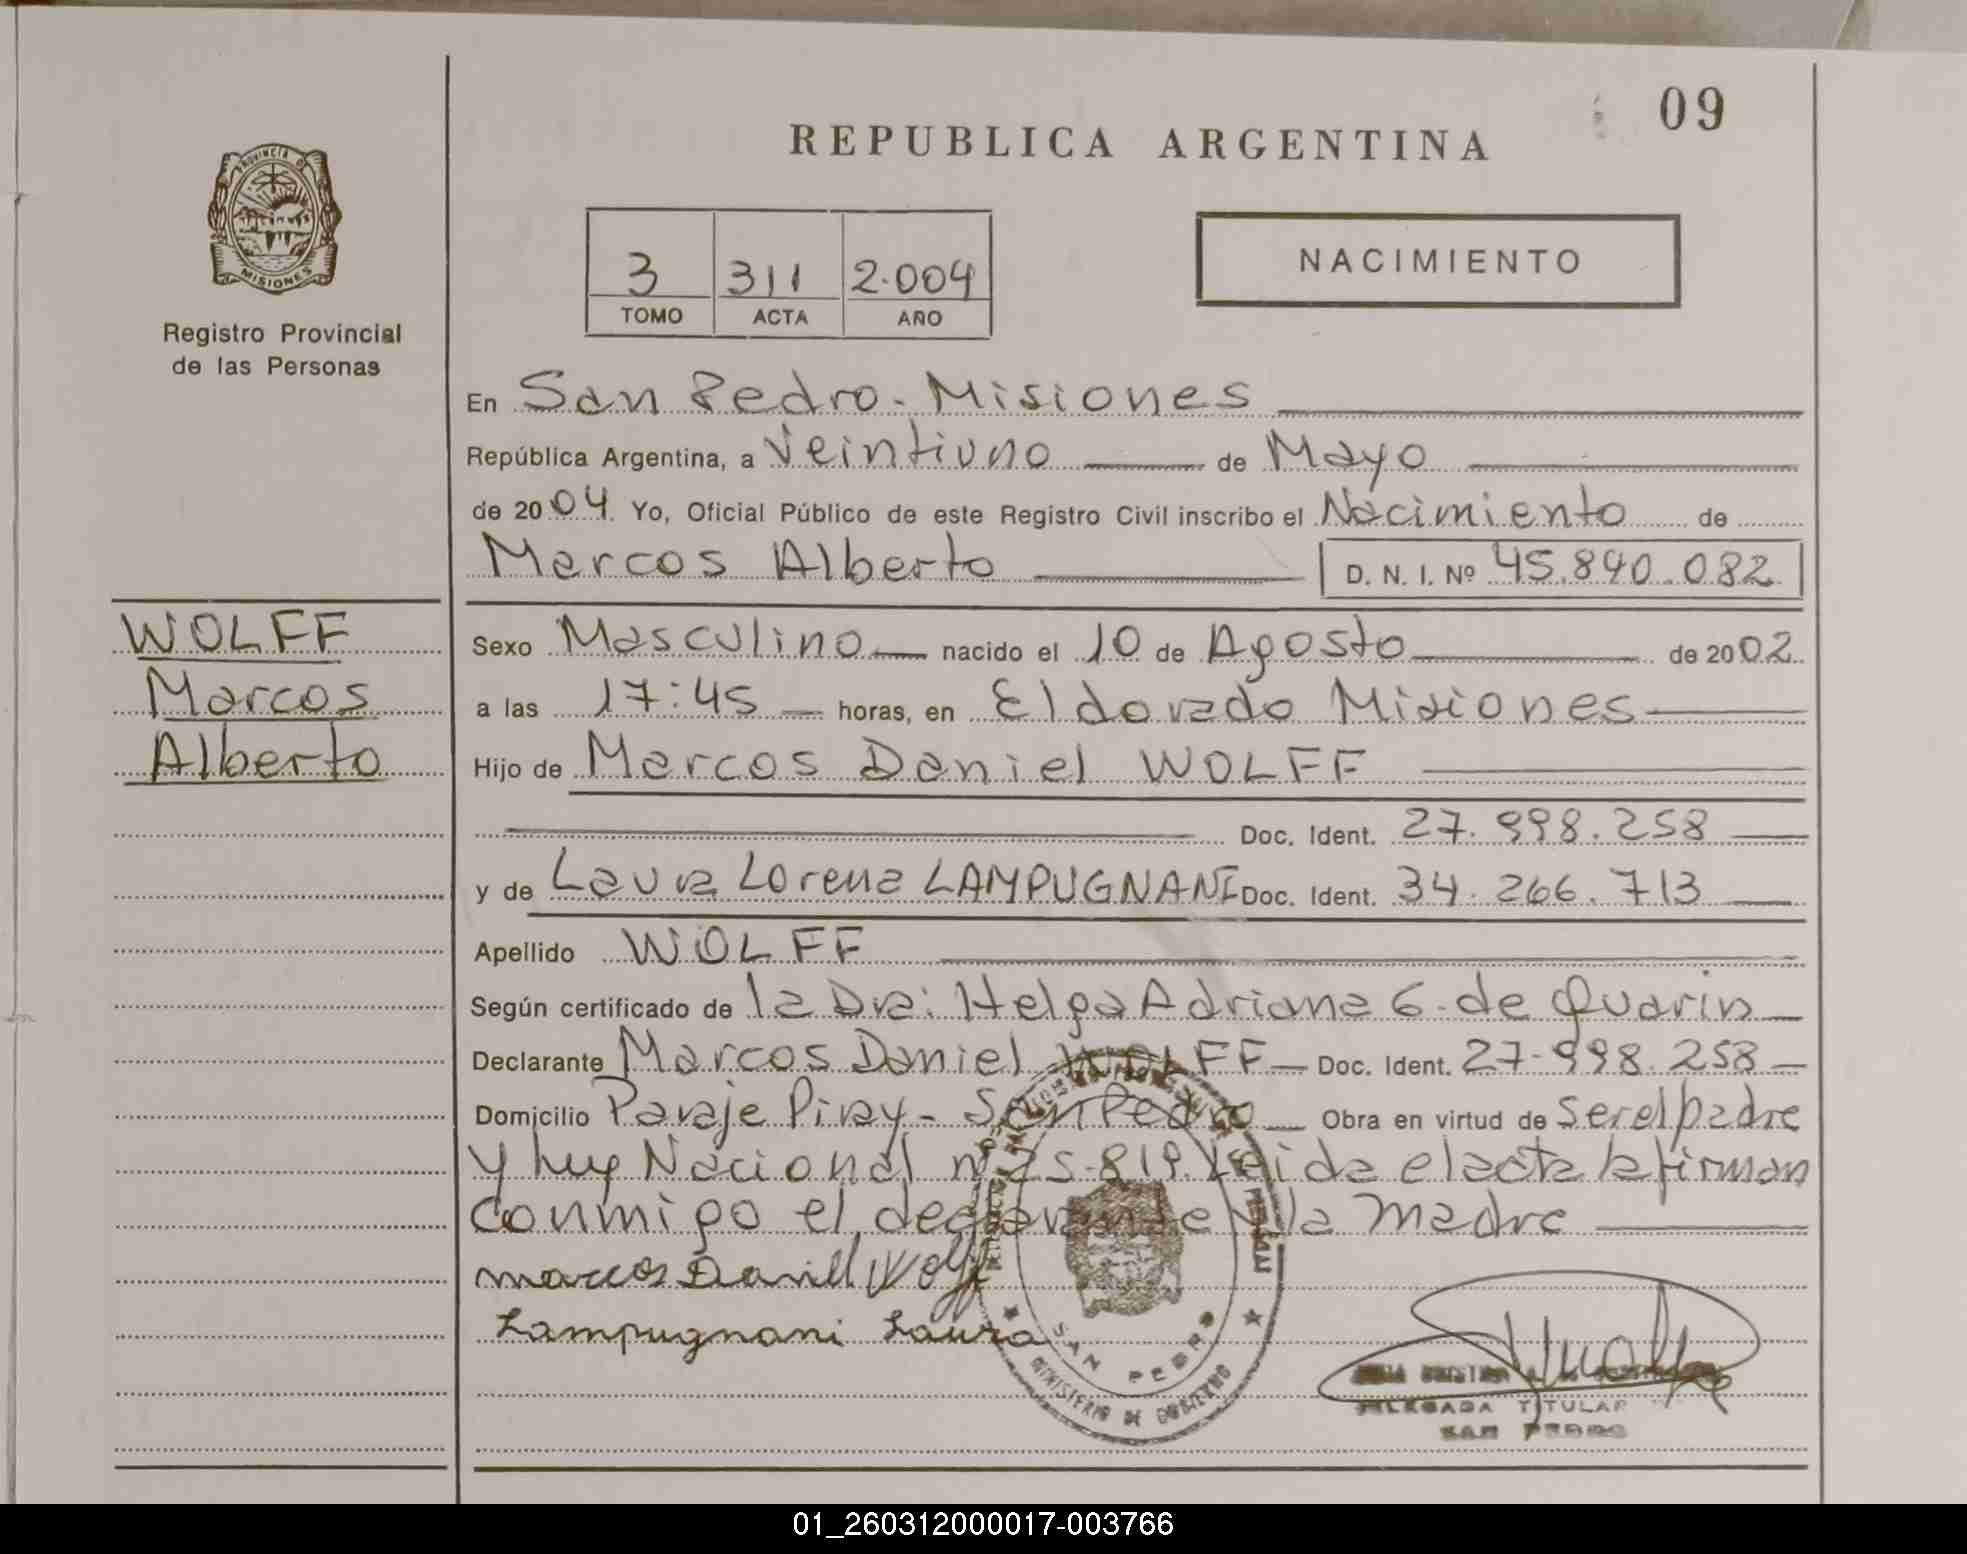 09
REPUBLICA ARGENTINA
PROVINCIA DE
MISIONES
Registro Provincial
de las Personas
3 311 2.004
TOMO ACTA AÑO
NACIMIENTO
En San Pedro - Misiones
República Argentina, a Veintiuno de Mayo
de 2004. Yo, Oficial Público de este Registro Civil inscribo el Nacimiento de
Marcos Alberto D. N. I. Nº 45.840.082
WOLFF
Marcos
Alberto
Sexo Masculino nacido el 10 de Agosto de 2002
a las 17:45 horas, en Eldorado Misiones
Hijo de Marcos Daniel WOLFF
Doc. Ident. 27.998.258
y de Laura Lorena LAMPUGNANI Doc. Ident. 34.266.713
Apellido WOLFF
Según certificado de la Dra: Helga Adriana G. de Quarin
Declarante Marcos Daniel WOLFF Doc. Ident. 27.998.258
Domicilio Paraje Piray - San Pedro Obra en virtud de ser el padre
y ley Nacional nº 25.819. Leída el acta la firman
conmigo el declarante y la madre
Marcos Daniel Wolff
Lampugnani Laura
SAN PEDRO
MINISTERIO DE GOBIERNO
DELEGADA TITULAR
SAN PEDRO
01_260312000017-003766